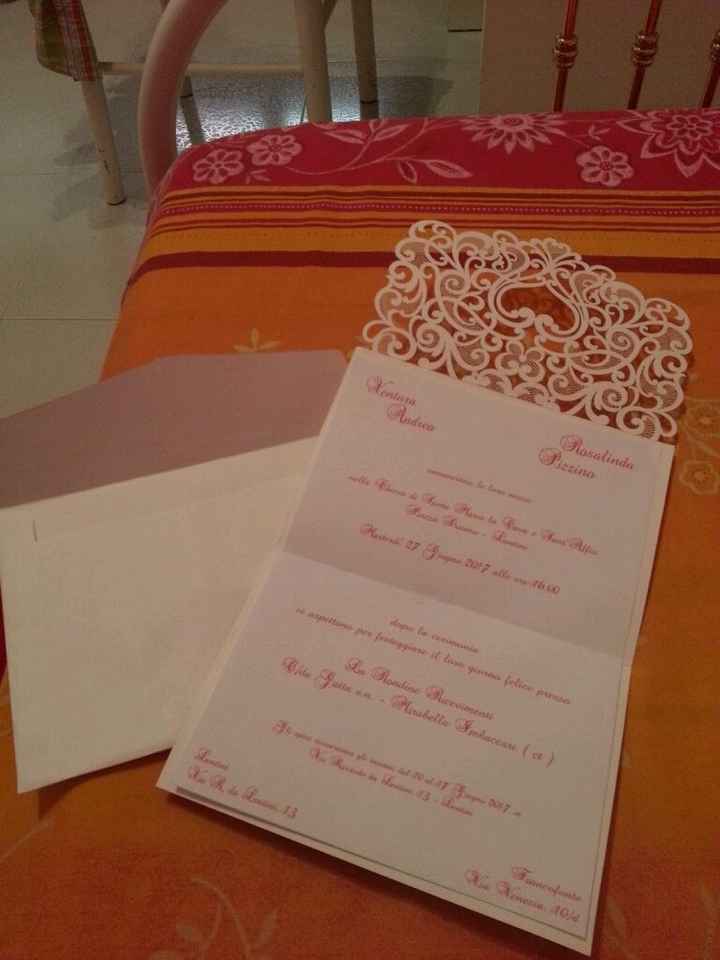 Ventura
Andrea
Rosalinda
Pizzino
annunciano le loro nozze
nella Chiesa di Santa Maria la Cava e Sant'Alfio
Piazza Duomo - Lentini
Martedì 27 Giugno 2017 alle ore 16.00
dopo la cerimonia
vi aspettano per festeggiare il loro giorno felice presso
La Rondine Ricevimenti
C/da Gatta s.n. - Mirabella Imbaccari ( ct )
Gli sposi riceveranno gli invitati dal 10 al 17 Giugno 2017 in
Via Riccardo da Lentini, 13 - Lentini
Lentini
Via R. da Lentini, 13
Francofonte
Via Venezia, 10/d